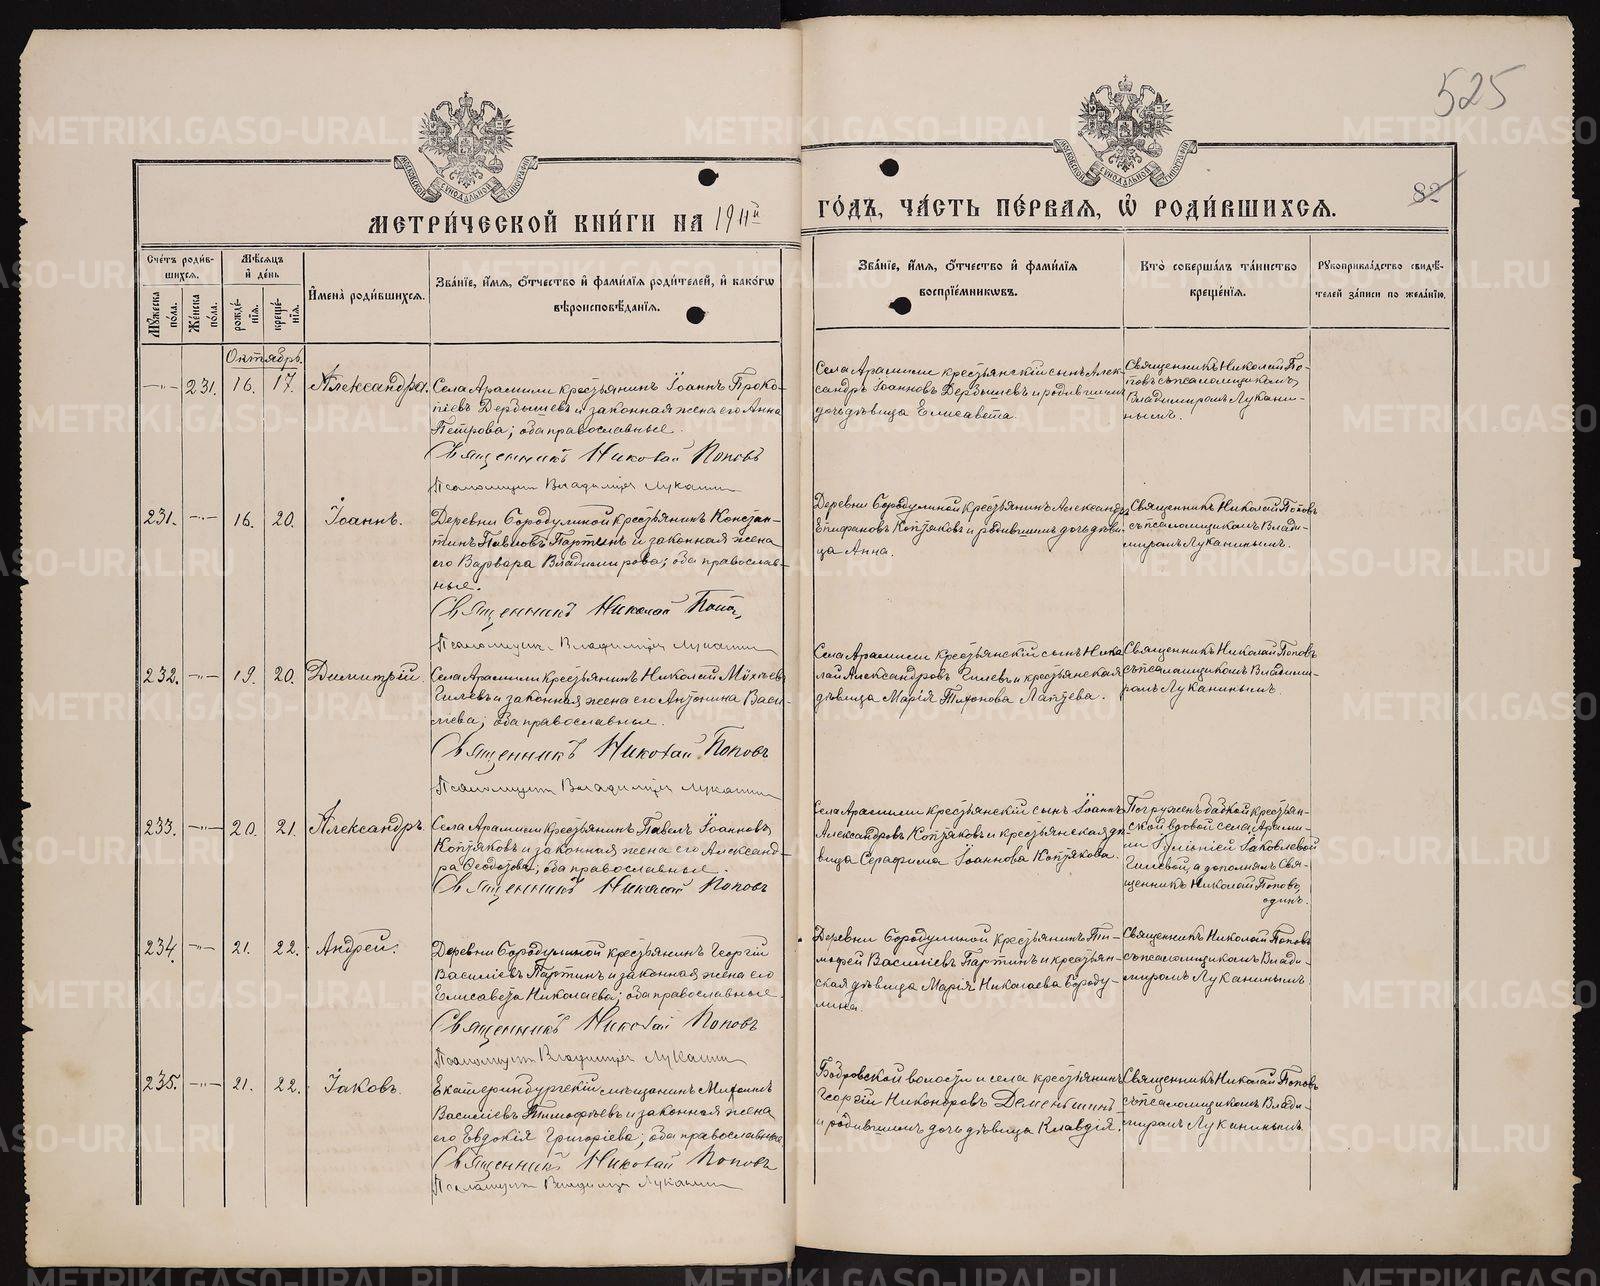 525
82
МЕТРИ́ЧЕСКОЙ КНИ́ГИ НА 1911й ГО́ДЪ, ЧА́СТЬ ПЕ́РВАЯ, Ѡ РОДИ́ВШИХСЯ.
Сче́тъ роди́в-
шихся.
Мꙋжеска по́ла.
Же́нска по́ла.
Мѣ́сяцъ
и҆ де́нь
рожде́-
нїя.
креще́-
нїя.
И҆мена̀ роди́вшихся.
Зва́нїе, и҆́мя, ѻ҆́тчество и҆ фами́лїя роди́телей, и҆ како́гѡ
вѣроисповѣ́данїя.
Зва́нїе, и҆́мя, ѻ҆́тчество и҆ фами́лїя
воспрїе́мникѡвъ.
Кто̀ соверша́лъ та́инство
креще́нїя.
Рꙋкоприкла́дство свидѣ́-
телей за́писи по жела́нїю.
Октябрь.
231. 16. 17. Александра.
Села Арамили крестьянинъ Іоаннъ Проко-
піевъ Дербышевъ и законная жена его Анна
Петрова; оба православные.
Священникъ Николай Поповъ
Псаломщик Владимір Луканин
Села Арамили крестьянскій сынъ Алек-
сандръ Іоанновъ Дербышевъ и родившихъ
дочь дѣвица Елисавета.
Священникъ Николай По-
повъ съ псаломщикомъ
Владиміромъ Лукани-
нымъ.
231. 16. 20. Іоаннъ.
Деревни Бородулиной крестьянинъ Констан-
тинъ Павловъ Партинъ и законная жена
его Варвара Владимирова; оба православ-
ные.
Священникъ Николай Попов
Псаломщик Владимір Луканин
Деревни Бородулиной крестьянинъ Александръ
Епифановъ Копряковъ и родившихъ дочь дѣви-
ца Анна.
Священникъ Николай Поповъ
съ псаломщикомъ Влади-
миромъ Луканинымъ.
232. 19. 20. Димитрій.
Села Арамили крестьянинъ Николай
Гилевъ и законная жена его Антонина Васи-
льева; оба православные.
Священникъ Николай Поповъ
Псаломщик Владимір Луканин
Села Арамили крестьянскій сынъ Нико-
лай Александровъ Гилевъ и крестьянская
дѣвица Марія Тихонова Лаптева.
Священникъ Николай Поповъ
съ псаломщикомъ Владими-
ромъ Луканинымъ.
233. 20. 21. Александръ.
Села Арамили крестьянинъ Павелъ Іоанновъ
Копряковъ и законная жена его Александ-
ра Ѳеодотова; оба православные.
Священникъ Николай Поповъ
Села Арамили крестьянскій сынъ Іоаннъ
Александровъ Копряковъ и крестьянская дѣ-
вица Серафима Іоаннова Копрякова.
Погруженъ бабкой крестьян-
ской вдовой села Арами-
ли Іуліаніей Іаковлевой
Гилевой, а дополнялъ Свя-
щенникъ Николай Поповъ,
одинъ.
234. 21. 22. Андрей.
Деревни Бородулиной крестьянинъ Георгій
Василіевъ Партинъ и законная жена его
Елисавета Николаева; оба православные.
Священникъ Николай Поповъ
Псаломщик Владимір Луканин
Деревни Бородулиной крестьянинъ Ти-
мофей Василіевъ Партинъ и крестьян-
ская дѣвица Марія Николаева Бороду-
лина.
Священникъ Николай Поповъ
съ псаломщикомъ Влади-
миромъ Луканинымъ.
235. 21. 22. Іаковъ.
Екатеринбургскій мѣщанинъ
Василіевъ Тимофѣевъ и законная жена
его Евдокія Григоріева; оба православные
Священникъ Николай Поповъ
Псаломщик Владимір Луканин
Бобровской волости и села крестьянинъ
Георгій Никоноровъ Деменьшинъ
и родившихъ дочь дѣвица Клавдія.
Священникъ Николай Поповъ
съ псаломщикомъ Влади-
миромъ Луканинымъ